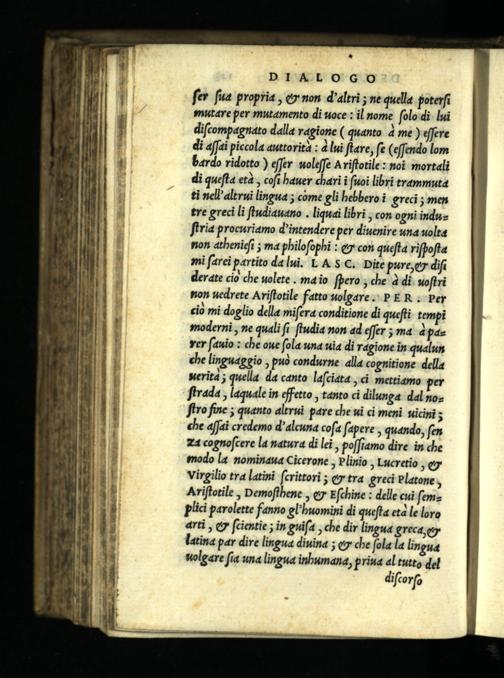 DIALOGO
ser sua propria, & non d'altri; ne quella potersi
mutare per mutamento di uoce: il nome solo di lui
discompagnato dalla ragione (quanto à me) essere
di assai piccola auttorità: à lui stare, se (essendo lom
bardo ridotto) esser uolesse Aristotile: noi mortali
di questa età, cosi hauer chari i suoi libri trammuta
ti nell'altrui lingua; còme gli hebbero i greci; men
tre greci li studiauano. liquai libri, con ogni indu=
stria procuriamo d'intendere per diuenire una uolta
non atheniesi; ma philosophi: & con questa risposta
mi sarei partito da lui. LASC. Dite pure, & disi
derate ciò che uolete. ma io spero, che à dì uostri
non uedrete Aristotile fatto uolgare. PER. Per
ciò mi doglio della misera conditione di questi tempi
moderni, ne quali si studia non ad esser; ma à pa=
rer sauio: che oue sola una uia di ragione in qualun
che linguaggio, può condurne alla cognitione della
uerità; quella da canto lasciata, ci mettiamo per
strada, laquale in effetto, tanto ci dilunga dal no=
stro fine; quanto altrui pare che ui ci meni uicini;
che assai credemo d'alcuna cosa sapere, quando, sen
za cognoscere la natura di lei, possiamo dire in che
modo la nominaua Cicerone, Plinio, Lucretio, &
Virgilio tra latini scrittori; & tra greci Platone,
Aristotile, Demosthene, & Eschine: delle cui sem=
plici parolette fanno gl'huomini di questa età le loro
arti, & scientie; in guisa, che dir lingua greca, &
latina par dire lingua diuina; & che sola la lingua
uolgare sia una lingua inhumana, priua al tutto del
discorso